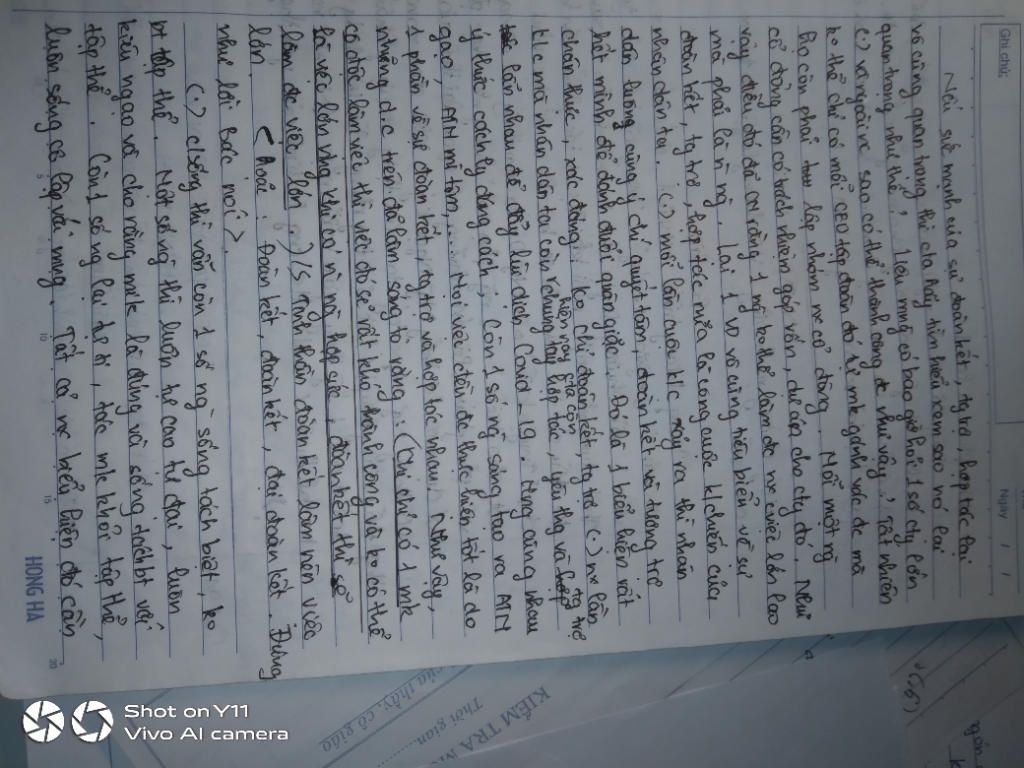 Ghi chú:
Ngày / /
Nói sứ mệnh của sự đoàn kết, tg trợ, hợp tác lại
vô cùng quan trọng thì cta hãy tìm hiểu xem sao nó lại
quan trọng như thế. Liệu mng có bao giờ hỏi 1 số cty lớn
(.) và ngoài nc sao có thể thành công đc như vậy, Tất nhiên
ko thể chỉ có mỗi CEO tập đoàn đó tự mk gánh vác đc mà
họ còn phải lập nhóm nx cổ đông. Mỗi một ng
cổ đông cần có trách nhiệm góp vốn, dự án cho cty đó. Như
vậy điều đó đủ cm rằng 1 mg ko thể làm đc nx việc lớn lao
mà phải là n ng. Lại 1 vd vô cùng tiêu biểu về sự
đoàn kết, tg trợ, hợp tác nữa là công cuộc k/chiến của
nhân dân ta. (.) mỗi lần cuộc k/c xảy ra thì nhân
dân luôn cùng ý chí quyết tâm, đoàn kết và tương trợ
hết mình để đánh đuổi quân giặc. Đó là 1 biểu hiện rất
chân thực, xác đáng ko chỉ đoàn kết, tg trợ (.) nx lần
k/c mà nhân dân ta còn hợp tác, yêu thg và tg trợ
hiện nay cta còn chung tay
lẫn nhau để đẩy lùi dịch Covid-19. Mng cùng nhau
ý thức cách ly đúng cách, Còn 1 số ng sáng tạo ra ATM
gạo, ATM mì tôm,.... Mọi vc đc thực hiện tốt là do
1 phần về sự đoàn kết, tg trợ và hợp tác nhau. Như vậy,
những d.c trên đã làm sáng tỏ rằng: (Chỉ có 1 mk
cô độc làm việc thì việc đó sẽ rất khó thành công và ko có thể
là việc lớn nhg khi có n ng hợp sức, đoàn kết thì sẽ
làm đc việc lớn.)/S Tinh thần đoàn kết làm nên việc
lớn. < Hoặc: Đoàn kết, đoàn kết, đại đoàn kết. Đúng
như lời Bác nói >.
(.) c/sống thì vẫn còn 1 số ng sống tách biệt, ko
bt tập thể. Một số ng thì luôn tự cao tự đại, luôn
kiêu ngạo và cho rằng mk là đúng và sống tách bt với
tập thể. Còn 1 số ng lại tự ti, tách mk khỏi tập thể,
luôn sống cô lập với mng. Tất cả nx biểu hiện đó cần
5
10
15
20
HONG HA
KIỂM TRA
Thời gian....
của thầy, cô giáo
Shot on Y11
Vivo AI camera